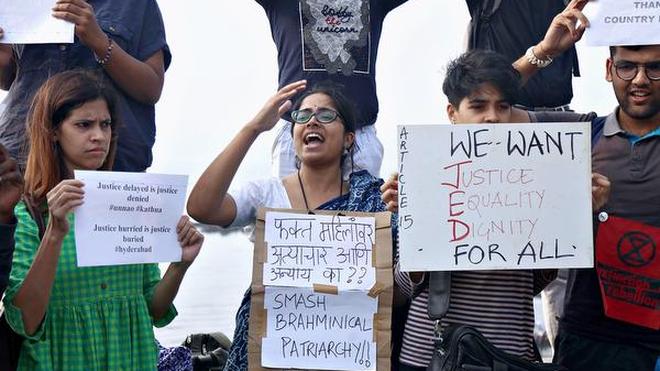 COUNTRY
the unicorn
Justice delayed is justice
denied
#unnao #kathua
Justice hurried is justice
buried
#hyderabad
फक्त महिलांवर
अत्याचार आणि
अन्याय का??
SMASH
BRAHMINICAL
PATRIARCHY!!
ARTICLE 15
WE WANT
JUSTICE
EQUALITY
DIGNITY
FOR ALL.
rebellion